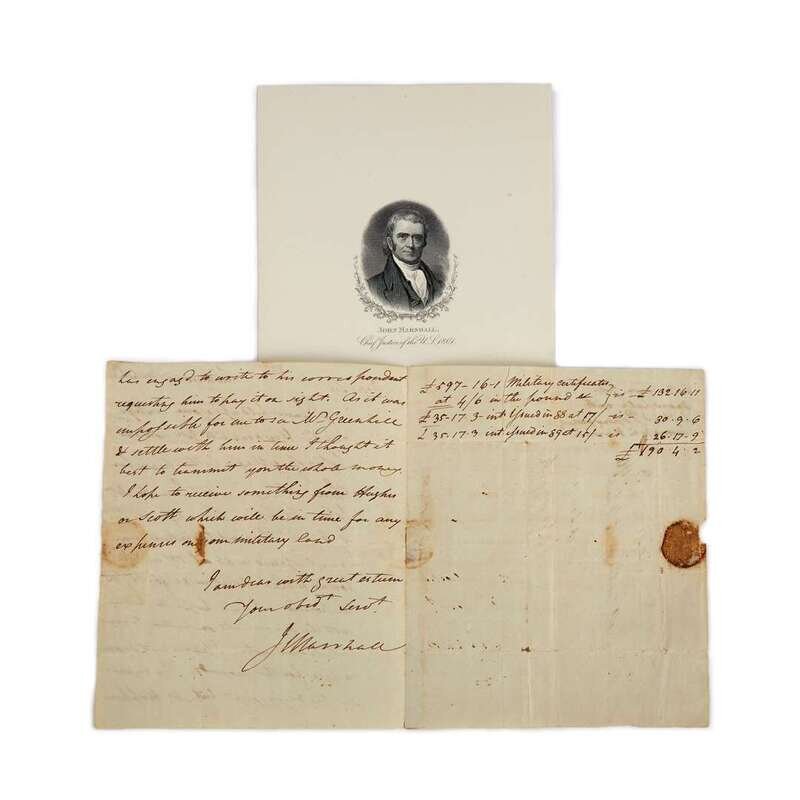 JOHN MARSHALL.
Chief Justice of the U.S. 1801.
has engagd to write to his correspondent
requesting him to pay it on sight. As it was
impossible for me to see Mr Greenhill
& settle with him in time I thought it
best to transmit you the whole money.
I hope to receive something from Hughes
or Scott which will be in time for any
expenses on our military land
I am dear with great esteem
Your obedt Servt
J Marshall
£597-16-1 Military certificates
at 4/6 in the pound is £ 132.16.11
£35-17.3 int issued in 88 at 17/ is - 30.9.6
£35.17.3 int issued in 89 at 15/ - is 26.17.9
£190.4.2